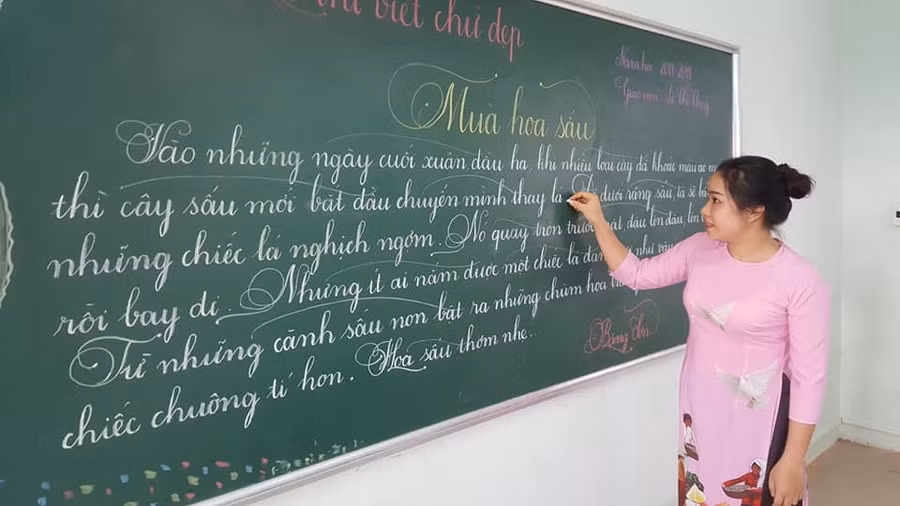 Thi viết chữ đẹp
Năm học: 2018-2019
Giáo viên:
Mùa hoa sấu
Vào những ngày cuối xuân đầu hạ, khi nhiều loài cây đã khoác màu áo
thì cây sấu mới bắt đầu chuyển mình thay lá dưới rặng sấu, ta sẽ
những chiếc lá nghịch ngợm. Nó quay tròn trước mặt, đậu lên đầu, lên
rồi bay đi. Nhưng ít ai nắm được một chiếc lá như vậy
Từ những cành sấu non bật ra những chùm hoa
chiếc chuông tí hon. Hoa sấu thơm nhẹ.
Băng Sơn